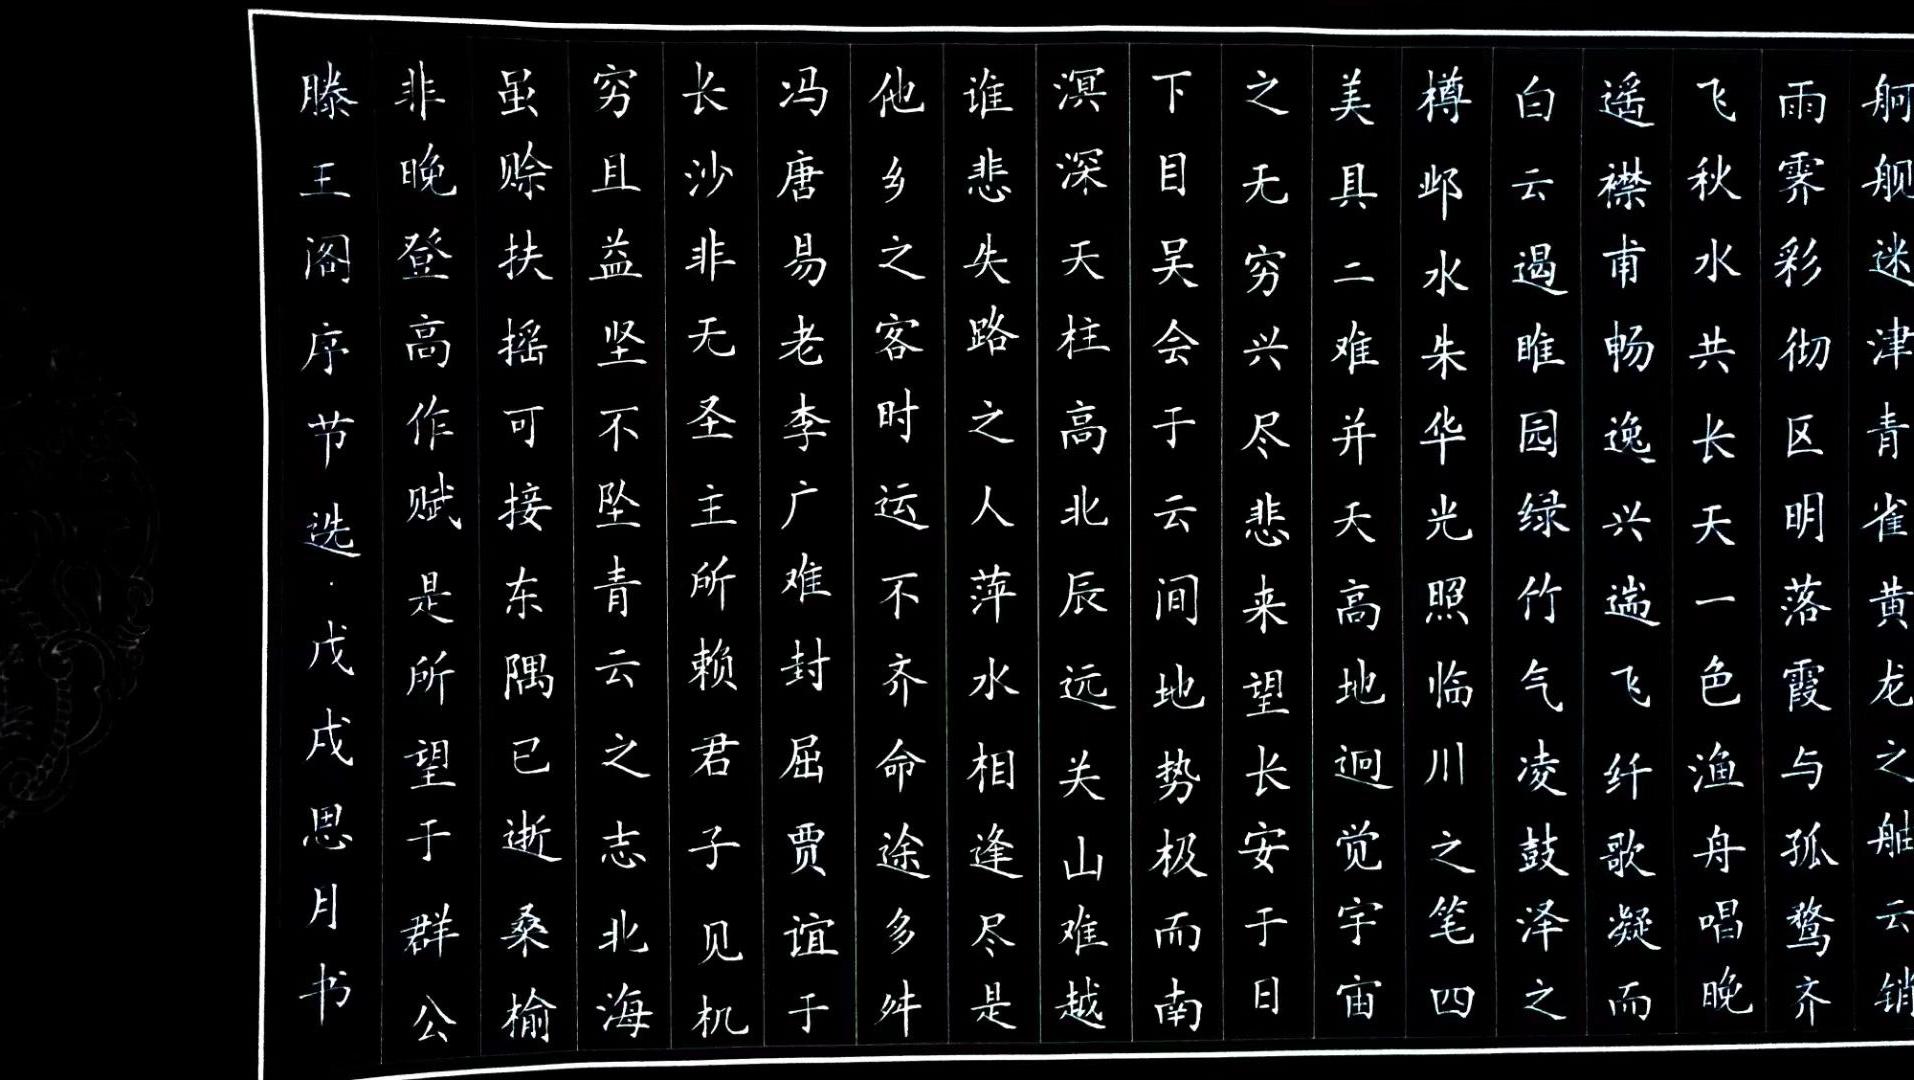 舸舰迷津青雀黄龙之舳云销
雨霁彩彻区明落霞与孤鹜齐
飞秋水共长天一色渔舟唱晚
遥襟甫畅逸兴遄飞纤歌凝而
白云遏睢园绿竹气凌鼓泽之
樽邺水朱华光照临川之笔四
美具二难并天高地迥觉宇宙
之无穷兴尽悲来望长安于日
下目吴会于云间地势极而南
溟深天柱高北辰远关山难越
谁悲失路之人萍水相逢尽是
他乡之客时运不齐命途多舛
冯唐易老李广难封屈贾谊于
长沙非无圣主所赖君子见机
穷且益坚不坠青云之志北海
虽赊扶摇可接东隅已逝桑榆
非晚登高作赋是所望于群公
滕王阁序节选·戊戌思月书